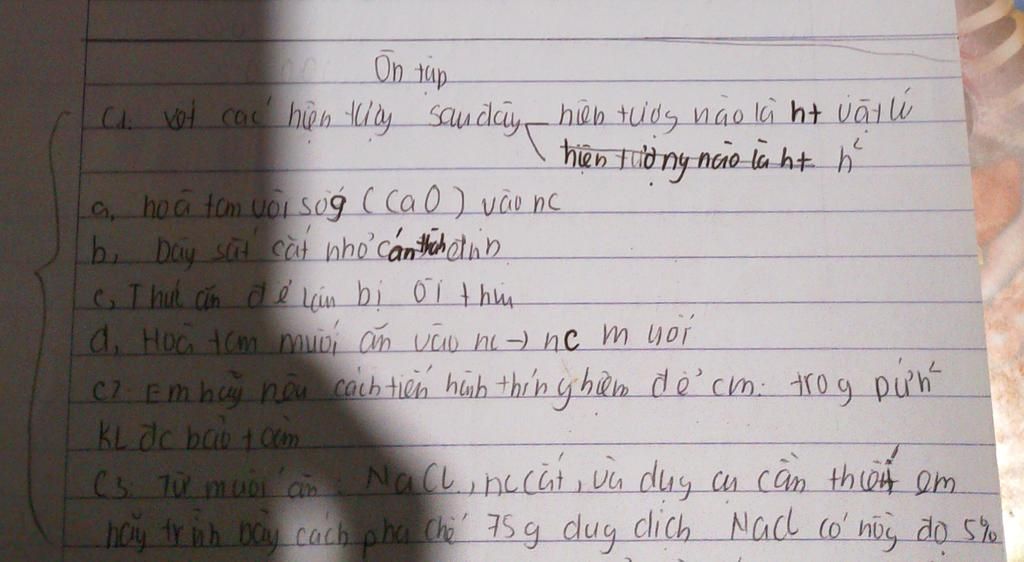 Ôn tập
C1. Với các hiện tượg sau đây hiện tượg nào là ht vật lí
hiện tượng nào là ht h²
a, hoà tan vôi sốg (CaO) vào nc
b, Dây sắt cắt nhỏ cán thành đinh
c, Thức ăn để lâu bị ôi thiu
d, Hoà tan muối ăn vào nc → nc muối
C2. Em hãy nêu cách tiến hành thí nghiệm để cm: trog pứ h²
KL đc bảo toàn
C3. Từ muối ăn: NaCl, nc cất, và dụg cụ cần thiết em
hãy trình bày cách pha chế 75g dug dịch NaCl có nồg độ 5%